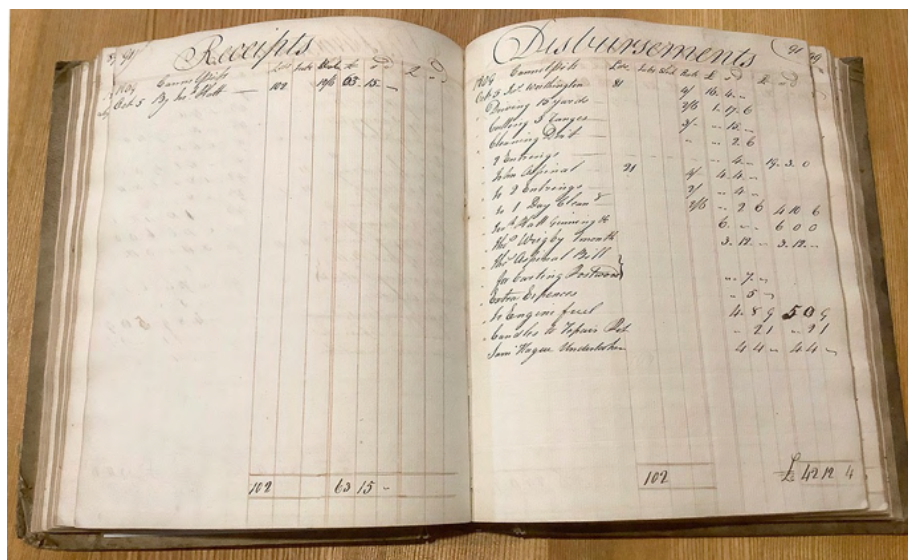 91
Receipts
1809
Oct. 5 By Jos. Hatt 102 12/6 63. 15. ~
102 63 15 ~
91
Disbursements
1809 Cannel Pits
Oct 5 Jos. Worthington 81 4/ 16. 4. ~
Driving 15 yards 2/6 1. 17. 6
Cutting 5 3/ ~ 15. ~
Cleaning ~ ~ 2. 6
2 Entrings ~ 4. ~ 19. 3. 0
John Aspinal 21 4/ 4. 4. ~
to 2 Entrings 2/ ~ 4. ~
to 1 Day Clean 2/6 ~ 2 6 4 10 6
Hatt 6. ~ ~ 6 0 0
Thos. Wrigby 1 month 3. 12. ~ 3. 12. ~
Thos. Aspinal Bill
for Carting ~ 7. ~
Extra Expences ~ 5 ~
to Engine fuel 4. 8 9 5 0 9
Candles to Pit ~ 2 1 ~ 2 1
Sam Hague Undertaker 4 4 ~ 4 4 ~
102 £ 42 12 4